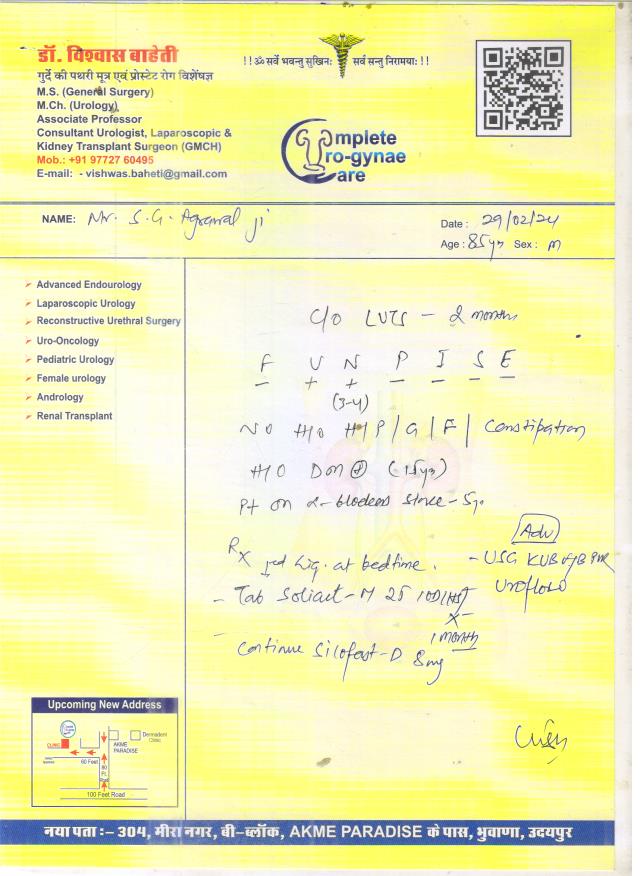 डॉ. विश्वास बाहेती
गुर्दे की पथरी मूत्र एवं प्रोस्टेट रोग विशेषज्ञ
M.S. (General Surgery)
M.Ch. (Urology)
Associate Professor
Consultant Urologist, Laparoscopic &
Kidney Transplant Surgeon (GMCH)
Mob.: +91 97727 60495
E-mail: - vishwas.baheti@gmail.com
!! ॐ सर्वे भवन्तु सुखिनः सर्व सन्तु निरामयाः !!
Complete
Uro-gynae
Care
NAME: Mr. S.G. Agrawal ji
Date : 29/02/24
Age : 85yr Sex : M
Advanced Endourology
Laparoscopic Urology
Reconstructive Urethral Surgery
Uro-Oncology
Pediatric Urology
Female urology
Andrology
Renal Transplant
C/O LUTS - 2 months
F U N P I S E
- + + - - - -
(3-4)
NO H/O H/P/G/F/ Constipation
H/O DM + (15yr)
Pt on α-blockers since - 5yr
Adv
- USG KUB PVR
Uroflow
Rx
red liq. at bedtime.
- Tab Soliact-M 25 1OD(HS)
x
1 month
- Continue Silofast-D 8mg
Upcoming New Address
CLINIC
AKME
PARADISE
Dermadent
Clinic
60 Feet
100 Feet Road
नया पता :- 304, मीरा नगर, बी-ब्लॉक, AKME PARADISE के पास, भुवाणा, उदयपुर